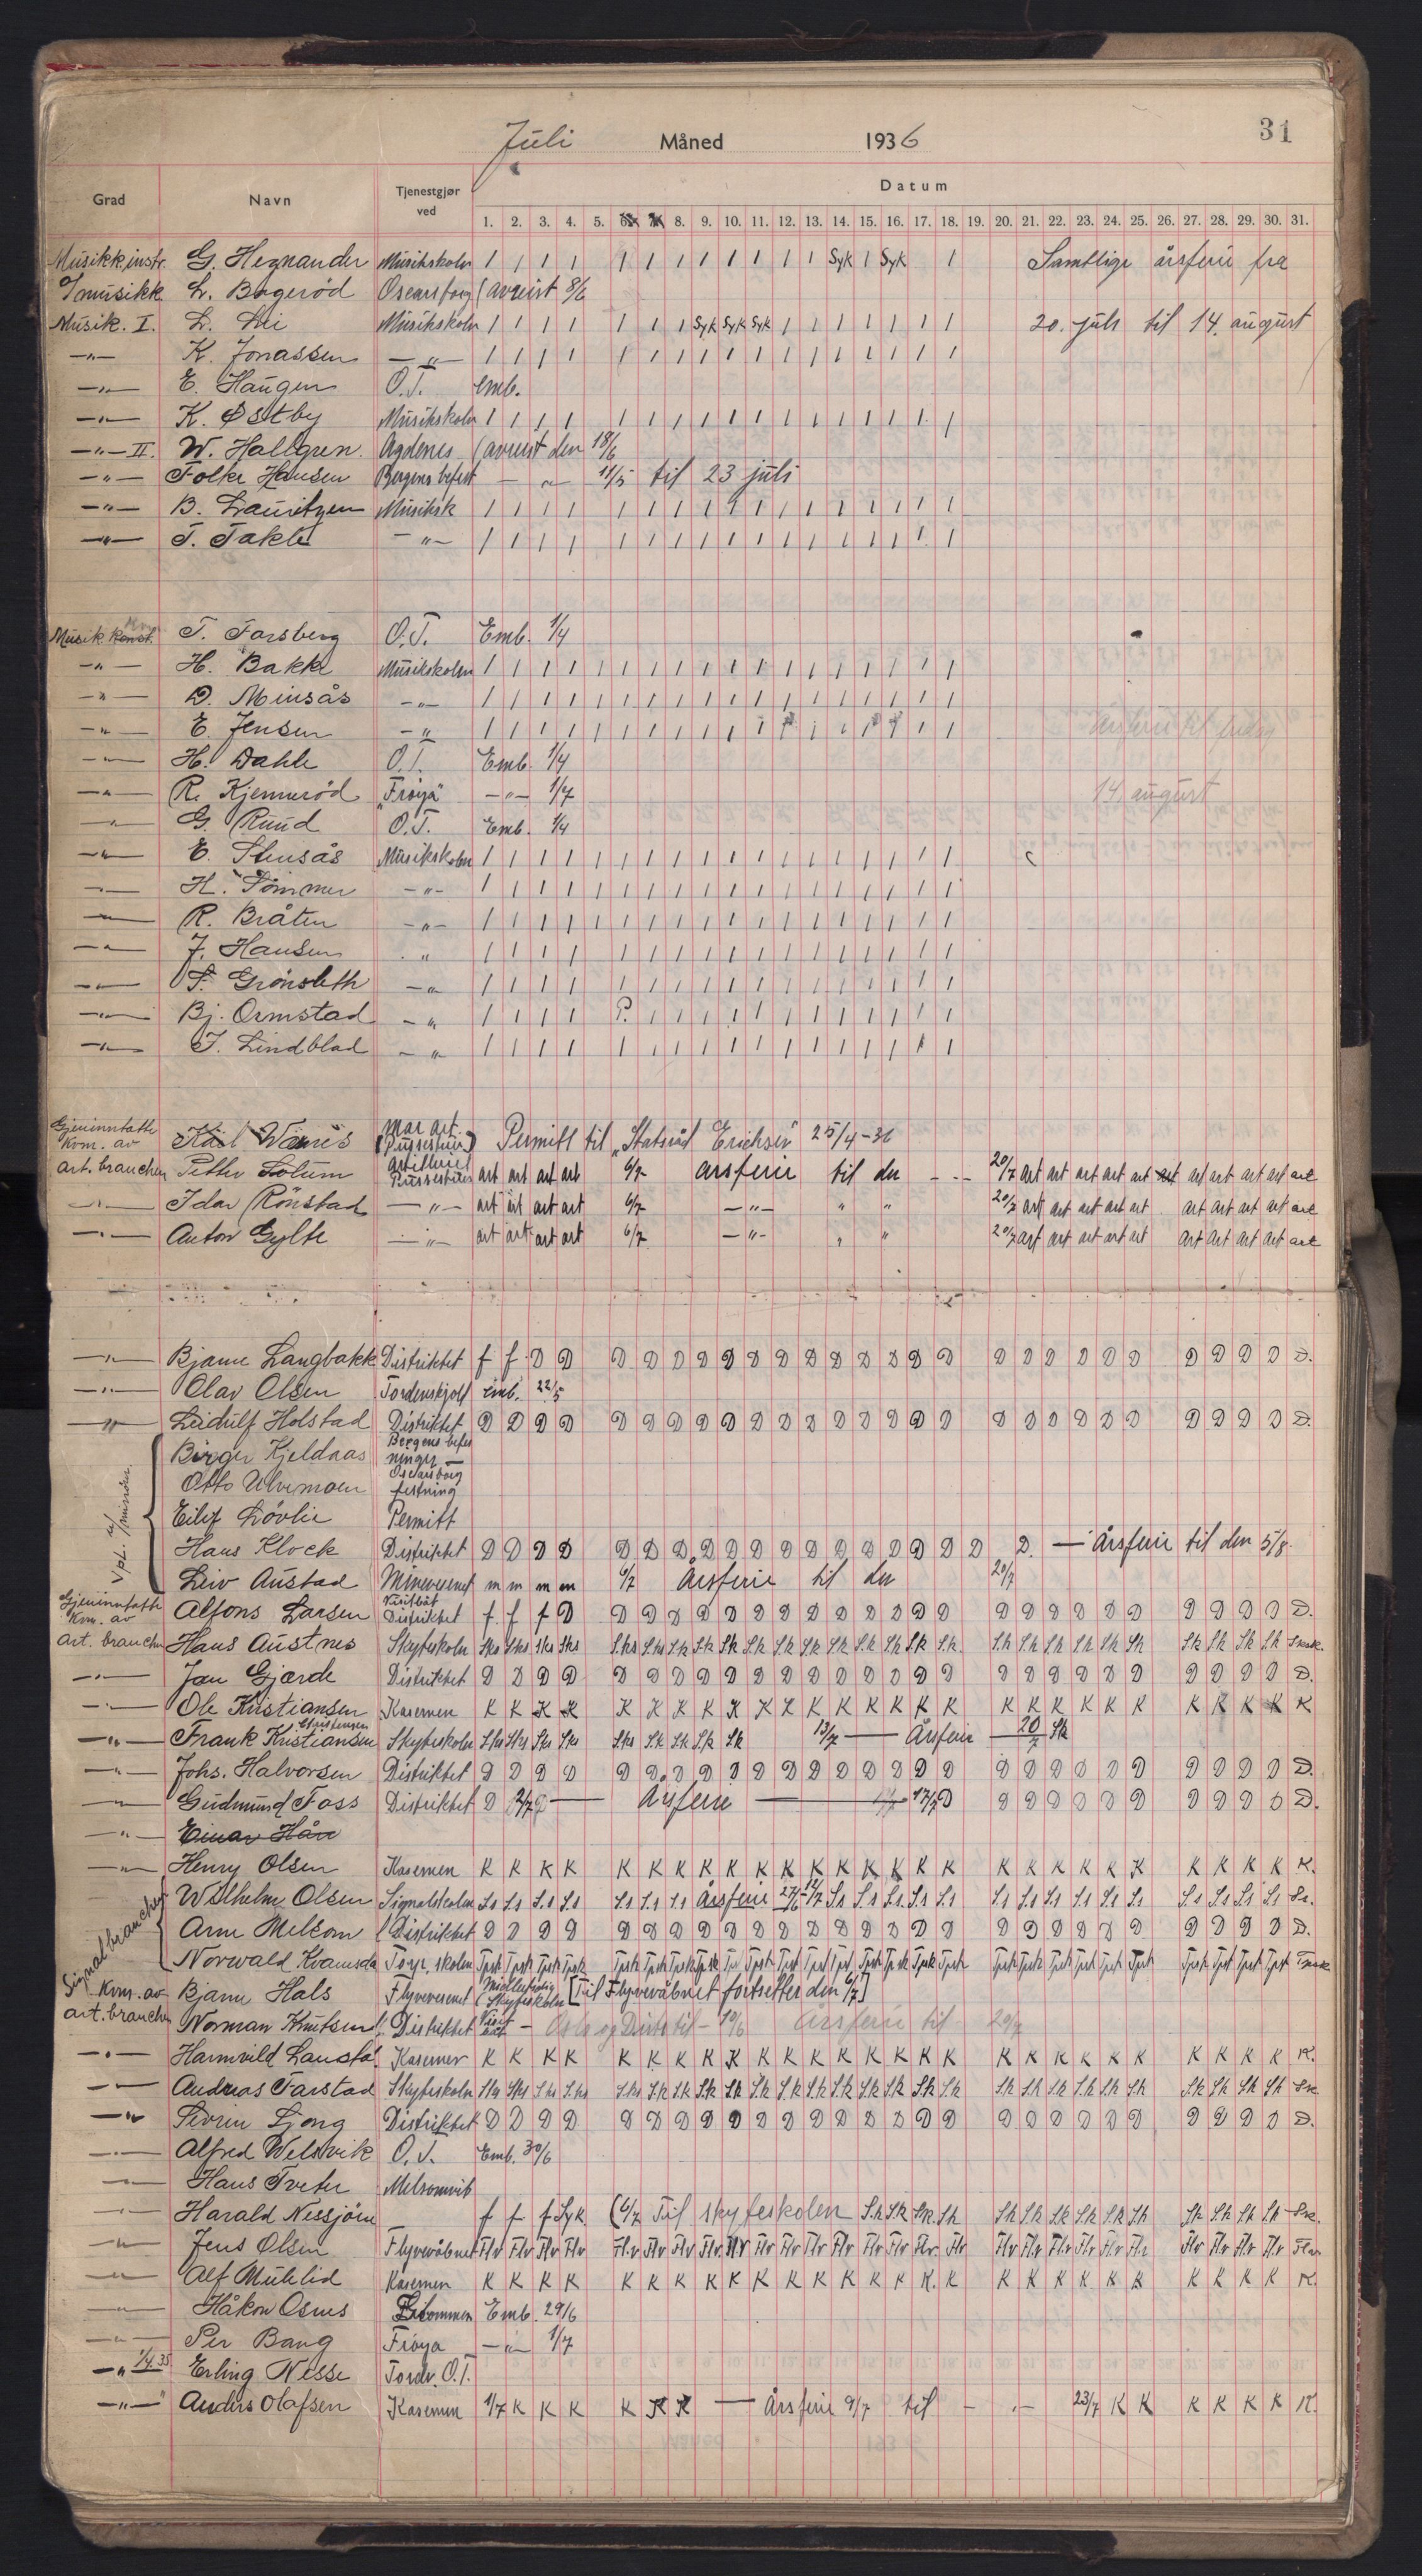 31
Juli Måned 1936
Grad Navn Tjenestgjør ved Datum
1. 2. 3. 4. 5. 6. 7. 8. 9. 10. 11. 12. 13. 14. 15. 16. 17. 18. 19. 20. 21. 22. 23. 24. 25. 26. 27. 28. 29. 30. 31.
Musikk.instr. G. Hegnander Musikskolen 1 1 1 1 1 1 1 1 1 1 1 1 Syk 1 Syk 1 Samtlige årsferie fra
musikk L. Bogerød Oscarsborg (avreist 8/6
Musik. I. L. Lie Musikskolen 1 1 1 1 1 1 1 Syk Syk Syk 1 1 1 1 1 1 1 20. juli til 14. august
—"— K. Jonassen —"— 1 1 1 1 1 1 1 1 1 1 1 1 1 1 1 1 1
—"— E. Haugen O.T. emb.
—"— K. Østby Musikskolen 1 1 1 1 1 1 1 1 1 1 1 1 1 1 1 1 1
—"— II. W. Hallgren Agdenes (avreist den 18/6
—"— Folke Hansen Bergens befest — " — 11/5 til 23 juli
—"— B. Lauritzen Musiksk 1 1 1 1 1 1 1 1 1 1 1 1 1 1 1 1 1
—"— T. Takle —"— 1 1 1 1 1 1 1 1 1 1 1 1 1 1 1 1 1
Musik. konst. T. Farsberg O.T. Emb. 1/4
—"— H. Bakke Musikskolen 1 1 1 1 1 1 1 1 1 1 1 1 1 1 1 1 1 1
—"— D. Minsås —"— 1 1 1 1 1 1 1 1 1 1 1 1 1 1 1 1 1 1
—"— E. Jensen —"— 1 1 1 1 1 1 1 1 1 1 1 1 1 1 1 1 1 1 årsferie til
—"— H. Dahle O.T. Emb. 1/4
—"— R. Kjennerød "Frøya" —"— 1/7 14. august
—"— G. Ruud O.T. Emb. 1/4
—"— E. Stensås Musikskolen 1 1 1 1 1 1 1 1 1 1 1 1 1 1 1 1 1 1
—"— H. Tømmer —"— 1 1 1 1 1 1 1 1 1 1 1 1 1 1 1 1 1 1
—"— R. Bråten —"— 1 1 1 1 1 1 1 1 1 1 1 1 1 1 1 1 1 1
—"— J. Hansen " 1 1 1 1 1 1 1 1 1 1 1 1 1 1 1 1 1
—"— P. Grønsleth —"— 1 1 1 1 1 1 1 1 1 1 1 1 1 1 1 1 1
—"— Bj. Ormstad —"— 1 1 1 1 P. 1 1 1 1 1 1 1 1 1 1 1 1
—"— J. Lindblad —"— 1 1 1 1 1 1 1 1 1 1 1 1 1 1 1 1 1
Gjeninntatte Kvm. av art. branchen Karl Wærnes Mar art. Permitt til "Statsråd Erichsen" 25/4-36
Petter Solum Artilleriet art art art art 6/7 årsferie til den — " — 20/7 art art art art art art art art art art art
—"— Idar Rønstad —"— art art art art 6/7 —"— " " 20/7 art art art art art art art art art art
—"— Anton Gylte —"— art art art art 6/7 —"— " " 20/7 art art art art art art art art art art
—"— Bjarne Langbakk Distriktet f f D D D D D D D D D D D D D D D D D D D D D D D D D D.
—"— Olav Olsen Tordenskjold emb. 22/5
—"— Leidulf Holstad Distriktet D D D D D D D D D D D D D D D D D D D D D D D D D D D D.
Vpl. u/ minører.
Birger Kjeldaas Bergens befestninger —
Otto Ulvemoen Oscarsborg festning
Eilif Løvlie Permitt
Hans Klock Distriktet D D D D D D D D D D D D D D D D D D D. — Årsferie til den 5/8.
Leiv Austad Minevesenet m m m m 6/7 Årsferie til den 20/7
Gjeninntatte Kvm. av art. branchen Alfons Larsen Visitbåt Distriktet f. f f D D D D D D D D D D D D D D D D D D D D D D D D D.
Hans Austnes Skyteskolen Sks Sks Sks Sks Sks Sks Sk Sk Sk Sk Sk Sk Sk Sk Sk Sk Sk Sk Sk Sk Sk Sk Sk Sk Sk Sk
—"— Jan Gjærde Distriktet D D D D D D D D D D D D D D D D D D D D D D D D D D D D.
—"— Ole Kristiansen Kasernen K K K K K K K K K K K K K K K K K K K K K K K K K K K K
—"— Frank Kristiansen Christensen Skyteskolen Sks Sks Sks Sks Sks Sk Sk Sk Sk 13/7 — Årsferie — 20/7 Sk
—"— Johs. Halvorsen Distriktet D D D D D D D D D D D D D D D D D D D D D D D D D D D D.
—"— Gudmund Foss Distriktet D 2/7 — Årsferie — 17/7 D D D D D D D D D D D D.
—"— Einar Hån
—"— Henry Olsen Kasernen K K K K K K K K K K K K K K K K K K K K K K K K K K K K.
Signalbranchen
Wilhelm Olsen Signalskolen Ss Ss Ss Ss Ss Ss Ss Årsferie 27/6-12/7 Ss Ss Ss Ss Ss Ss Ss Ss Ss Ss Ss Ss Ss Ss Ss Ss.
Arne Melsom Distriktet D D D D D D D D D D D D D D D D D D D D D D D D D D D D.
Norwald Kvamsda Torp. skolen Tpsk Tpsk Tpsk Tpsk Tpsk Tpsk Tpsk Tpsk
Kvm. av art. branchen Bjarne Hals Flyvevesenet Midlertidig Skyteskolen [Til Flyvevåbnet fortsetter den 6/7]
Norman Knutsen Distriktet Visit båt — Årsferie til 20/7
—"— Harmvild Laustø Kaserner K K K K K K K K K K K K K K K K K K K K K K K K K K K K.
—"— Andreas Farstad Skyteskolen Sks Sks Sks Sks Sks Sk Sk Sk Sk Sk Sk Sk Sk Sk Sk Sk Sk Sk Sk Sk Sk Sk Sk Sk Sk Sk Sk Sk
—"— Sivrin Ljong Distriktet D D D D D D D D D D D D D D D D D D D D D D D D D D D D.
—"— Alfred Welsvik O.T. Emb. 30/6
—"— Hans Tveter Melsomvik
—"— Harald Nessjøen f f f Syk (6/7 Til skyteskolen Sk Sk Sk Sk Sk Sk Sk Sk Sk Sk Sk Sk Sk Sk Sk.
—"— Jens Olsen Flyvevåbnet Flv Flv Flv Flv Flv Flv Flv Flv Flv Flv Flv Flv Flv Flv Flv Flv Flv Flv Flv Flv Flv Flv Flv Flv Flv Flv Flv
—"— Alf Muhlid Kasernen K K K K K K K K K K K K K K K K K K K K K K K K K K K K.
—"— Håkon Osnes Emb. 29/6
—"— Per Bang Frøya —"— 1/7
—"— 1/4 35 Erling Nesse Tordv. O.T.
—"— Anders Olafsen Kasernen 1/7 K K K K K K — Årsferie 9/7 til — " — 23/7 K K K K K K K.